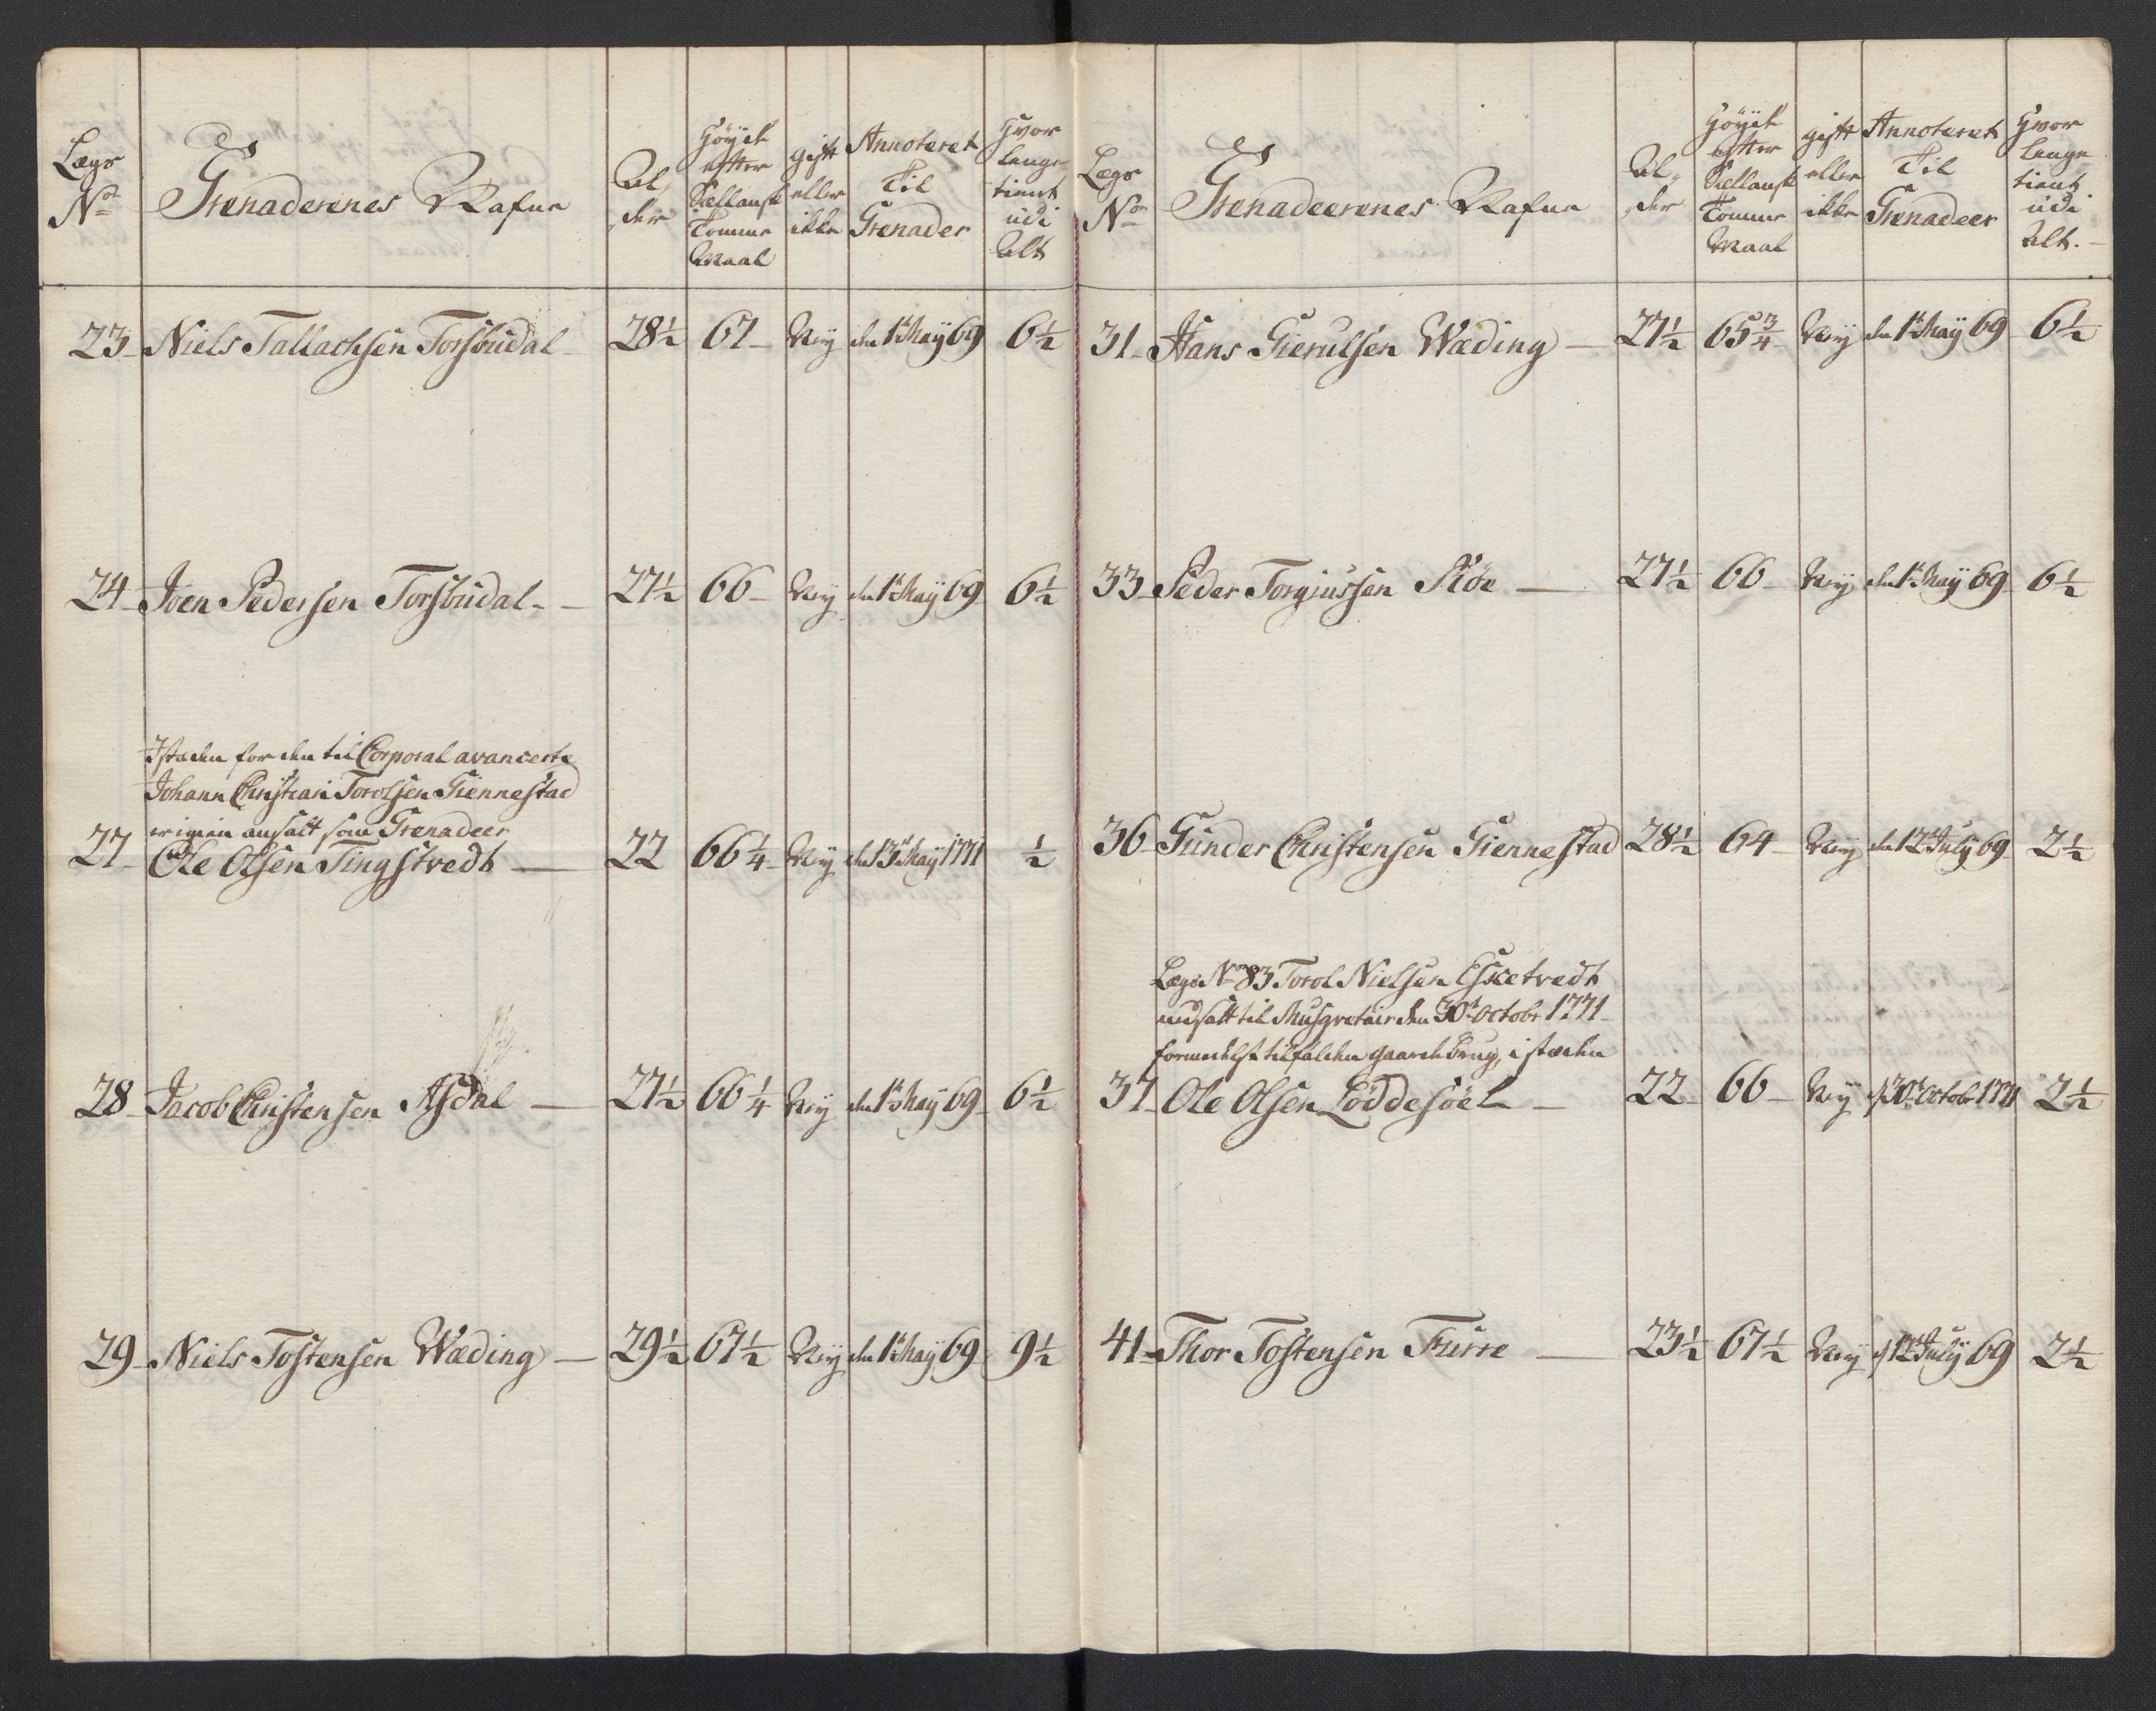 Lægs No Grenaderenes Nafne Al„der Höyde efter Siellansk Tomme Maal gift eller ikke Annoteret Til Grenader Hvor lenge tient udi Alt
23 Niels Tallachsen Torsbudal 28½ 67 Ney den 1te May 69 6½
24 Joen Pedersen Torsbudal 27½ 66 Ney den 1te May 69 6½
I stæden for den til Corporal avancerte
Johann Christian Torolsen Giennestad
er igien ansatt som Grenadeer
27 Ole Olsen Tingstvedt 22 66¼ Ney den 13de May 1771 ½
28 Jacob Christensen Asdal 27½ 66¼ Ney den 1te May 69 6½
29 Niels Tostensen Wæding 29½ 67½ Ney den 1te May 69 9½
Lægs No Grenadeerenes Nafne Al„der Höyde efter Siellansk Tomme Maal gift eller ikke Annoteret Til Grenadeer Hvor lenge tient udi Alt.
31 Hans Gierulsen Wæding 27½ 65¾ Ney den 1te May 69 6½
33 Peder Torgiussen Siöe 27½ 66 Ney den 1te May 69 6½
36 Gunder Christensen Giennestad 28½ 64 Ney den 12te July 69 2½
Lægs No 83 Torol Nielsen Esketvedt
udsatt til Musqvetair den 30te Octobr 1771
formedelst tilfalden gaardebrug, i stæden
37 Ole Olsen Löddesöel 22 66 Ney d 30te Octobr 1771 2½
41 Thor Tostensen Furre 23½ 67½ Ney d 12te July 69 2½